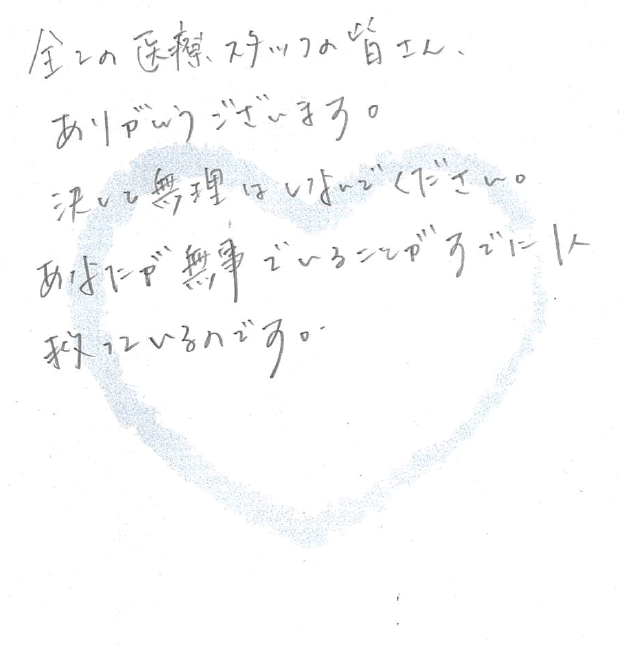 全ての医療スタッフの皆さん、
ありがとうございます。
決して無理はしないでください。
あなたが無事でいることがすでに1人
救っているのです。